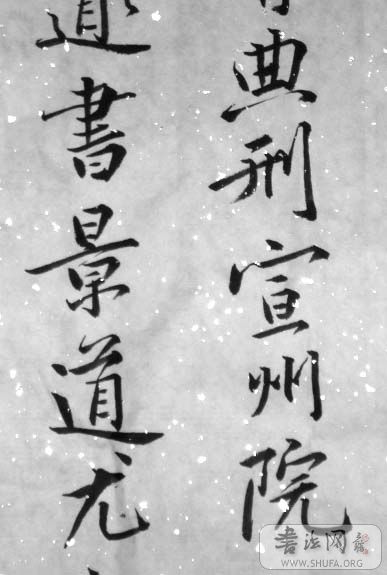 典刑宣州院
書景道尤
书法网
WWW.SHUFA.ORG